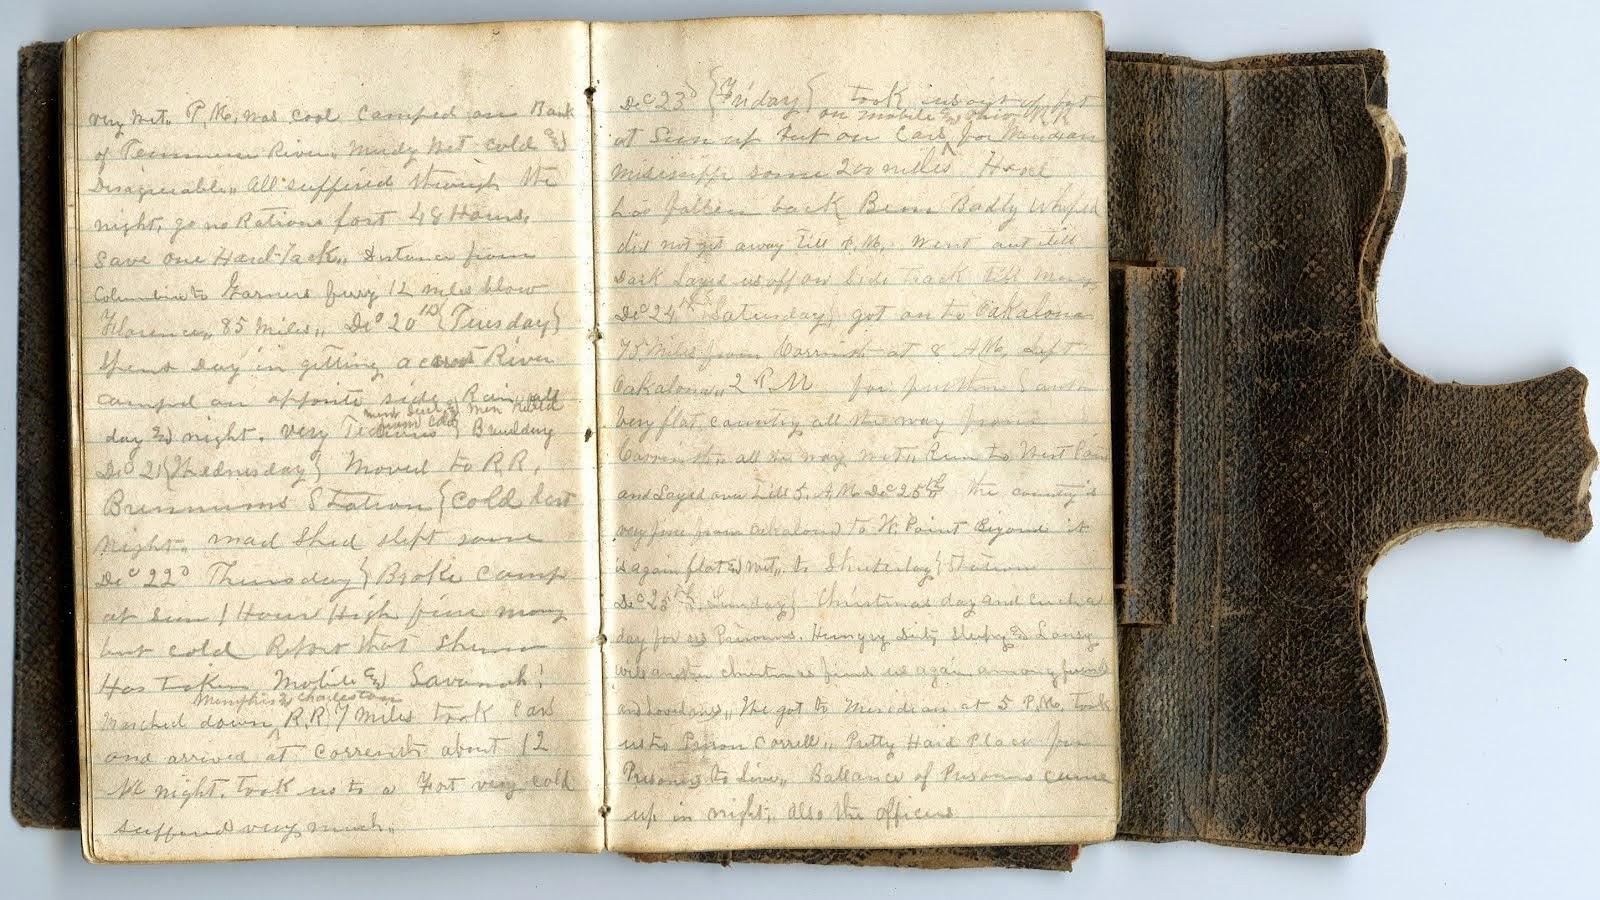 very wet. P.M. was cool Camped on Bank
of Tennessee River. Mudy wet cold &
Disagreeable. All suffered through the
night, go no Rations fort 48 Hours,
save one Hard-Tack. Distance from
Columbia to Garners ferry 12 miles blow
Florence. 85 Miles. Dec 20th {Tuesday}
Spent day in getting across River
camped on opposite side. Rain all
men Killed
day & night. very Tedious } Bruilding
Dec 21 {Wednesday} Moved to R.R.
Station {cold last
night. mad Shed slept some
Dec 22d Thursday} Broke camp
at Sun 1 Hour High fine morng
but cold Report that Sherman
Has taken Mobile & Savanah!
Memphis & Charleston
Marched down R.R. 7 miles took Cars
and arrived at Correnth about 12
at night. took us to a Fort very cold
suffered very much.
Dec 23d {Friday} took us out of fort
on Mobile & Ohio R.R
at Sun up Put on Cars for Meridean
Mississippi some 200 miles Hood
has fallen back Been Badly whiped
did not get away till P.M. went out till
Dark Layed us off on Side track till morng
Dec 24th {Saturday} got on to Oakalona
75 Miles from Corrinth at 8 A.M. Left
Oakalona. 2 P.M for further South
Very flat country all the way from
Corrinth. all the way wet. Run to West Point
and Layed over till 5. A.M. Dec 25th the country is
very fine from oakalona to W. Point Beyond it
is again flat & wet. to Station
Dec 25th, Sunday} Christmas day and such a
day for us Prisoners. Hungry Dirty sleepy & Lousy
will another christmas find us again among friends
and loved ones. We got to Meridian at 5 P.M. Took
us to Prison Correll. Pretty Hard Place for
Prisoners to Live. Ballance of Prisoners came
up in night, also the officers